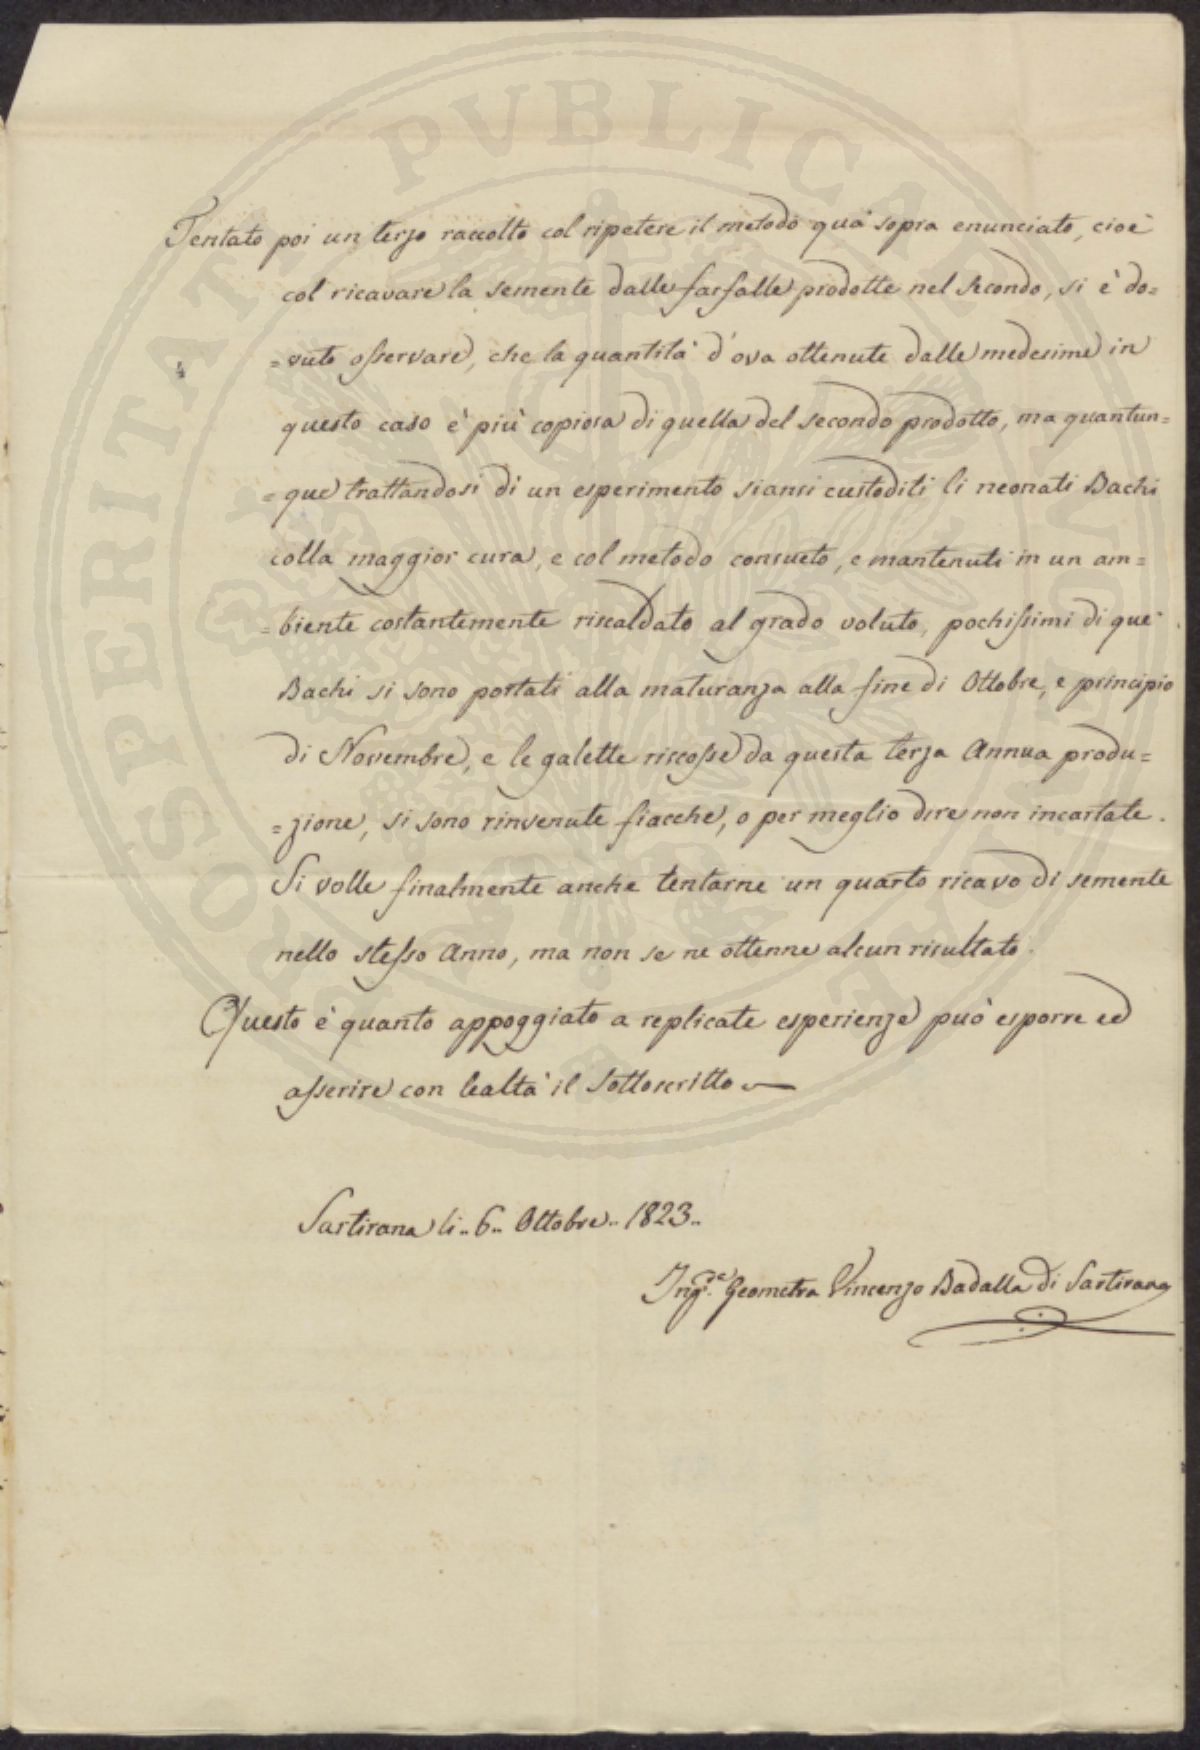 Tentato poi un terzo raccolto col ripetere il metodo quà sopra enunciato, cioè
col ricavare la semente dalle farfalle prodotte nel secondo, si è do=
=vuto osservare, che la quantità d'ova ottenute dalle medesime in
questo caso è più copiosa di quella del secondo prodotto, ma quantun=
=que trattandosi di un esperimento siansi custoditi li neonati Bachi
colla maggior cura, e col metodo consueto, e mantenuti in un am=
=biente costantemente riscaldato al grado voluto, pochissimi di que'
Bachi si sono portati alla maturanza alla fine di Ottobre, e principio
di Novembre, e le galette riscosse da questa terza Annua produ=
=zione, si sono rinvenute fiacche, o per meglio dire non incartate.
Si volle finalmente anche tentarne un quarto ricavo di semente
nello stesso Anno, ma non se ne ottenne alcun risultato.
Questo è quanto appoggiato a replicate esperienze può esporre ed
asserire con lealtà il Sottoscritto
Sartirana li.. 6.. Ottobre.. 1823..
Ing.re Geometra Vincenzo Badalla di Sartirana
PROSPERITATI PVBLICAE